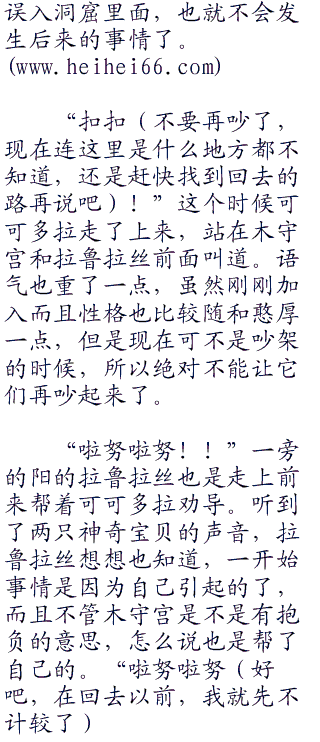 误入洞窟里面，也就不会发
生后来的事情了。
(www.heihei66.com)
“扣扣（不要再吵了，
现在连这里是什么地方都不
知道，还是赶快找到回去的
路再说吧）！”这个时候可
可多拉走了上来，站在木守
宫和拉鲁拉丝前面叫道。语
气也重了一点，虽然刚刚加
入而且性格也比较随和憨厚
一点，但是现在可不是吵架
的时候，所以绝对不能让它
们再吵起来了。
“啦努啦努！！”一旁
的阳的拉鲁拉丝也是走上前
来帮着可可多拉劝导。听到
了两只神奇宝贝的声音，拉
鲁拉丝想想也知道，一开始
事情是因为自己引起的了，
而且不管木守宫是不是有抱
负的意思，怎么说也是帮了
自己的。“啦努啦努（好
吧，在回去以前，我就先不
计较了）